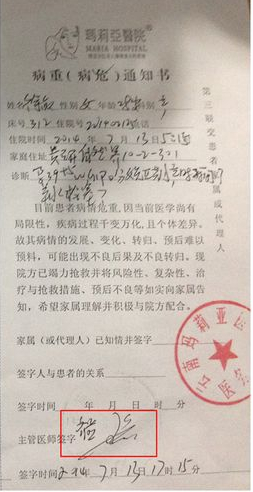 瑪莉亞醫院
MARIA HOSPITAL
病重(病危)通知书
姓名 性别 女 年龄 科别
床号 312 住院号
住院时间 2014 年 7 月 13 日
家庭住址 10-2-301
诊断
目前患者病情危重,因当前医学尚有
局限性,疾病过程千变万化,且个体差异。
故其病情的发展、变化、转归、预后难以
预料,可能出现不良后果及不良转归。现
院方已竭力抢救并将风险性、复杂性、治
疗与抢救措施、预后不良等如实向家属告
知,希望家属理解并积极与院方配合。
家属(或代理人)已知情并签字
签字人与患者的关系
签字时间 年 月 日 时 分
主管医师签字
签字时间 2014年 7 月 13 日 17 时 15 分
第三联交患者家属或代理人
南玛莉亚医
医务